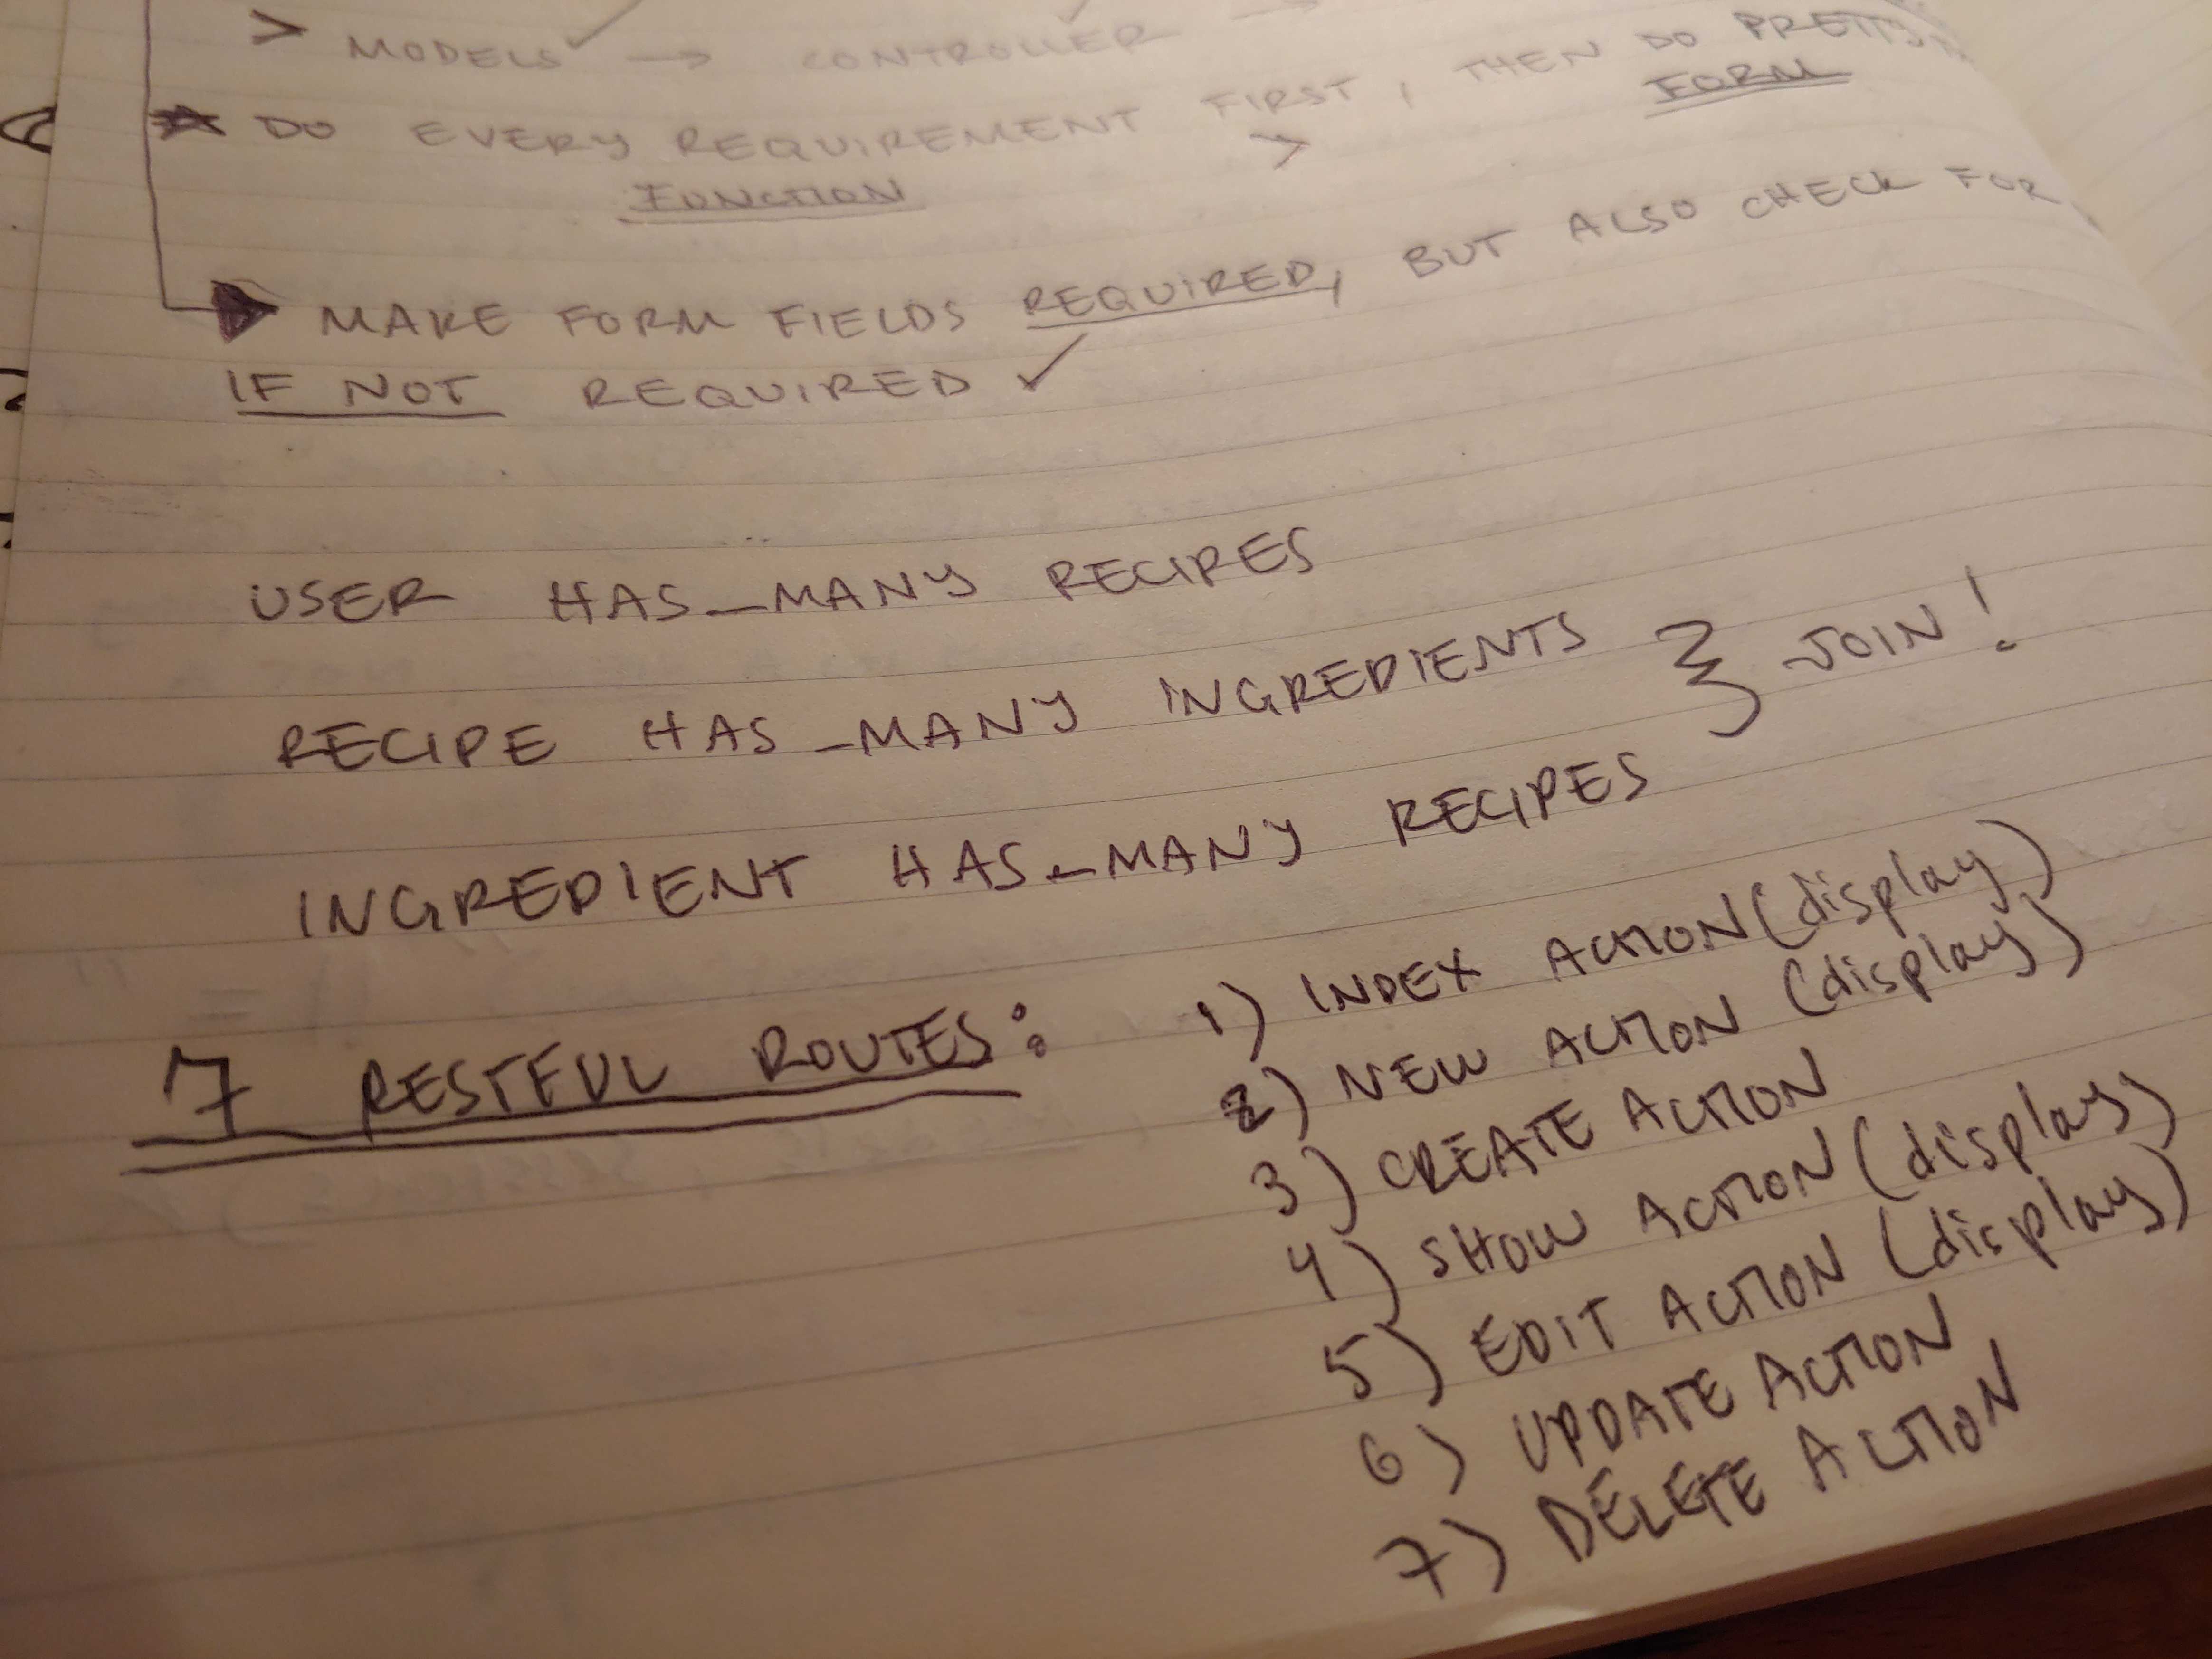 > MODELS ✓ → CONTROLLER →
★ DO EVERY REQUIREMENT FIRST, THEN DO PRETTY
FUNCTION > FORM
MAKE FORM FIELDS REQUIRED, BUT ALSO CHECK FOR
IF NOT REQUIRED ✓
USER HAS_MANY RECIPES
RECIPE HAS_MANY INGREDIENTS } JOIN!
INGREDIENT HAS_MANY RECIPES
7 RESTFUL ROUTES:
1) INDEX ACTION (display)
2) NEW ACTION (display)
3) CREATE ACTION
4) SHOW ACTION (display)
5) EDIT ACTION (display)
6) UPDATE ACTION
7) DELETE ACTION